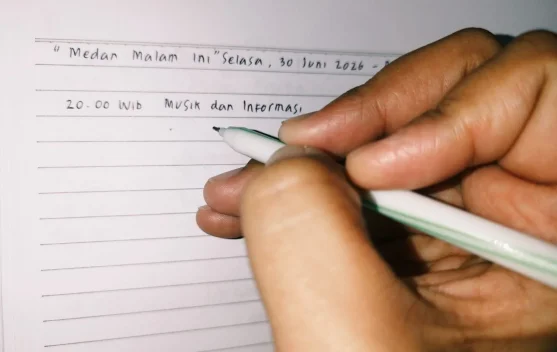 " Medan Malam Ini " Selasa, 30 Juni 2026 -
20.00 Wib Musik dan Informasi